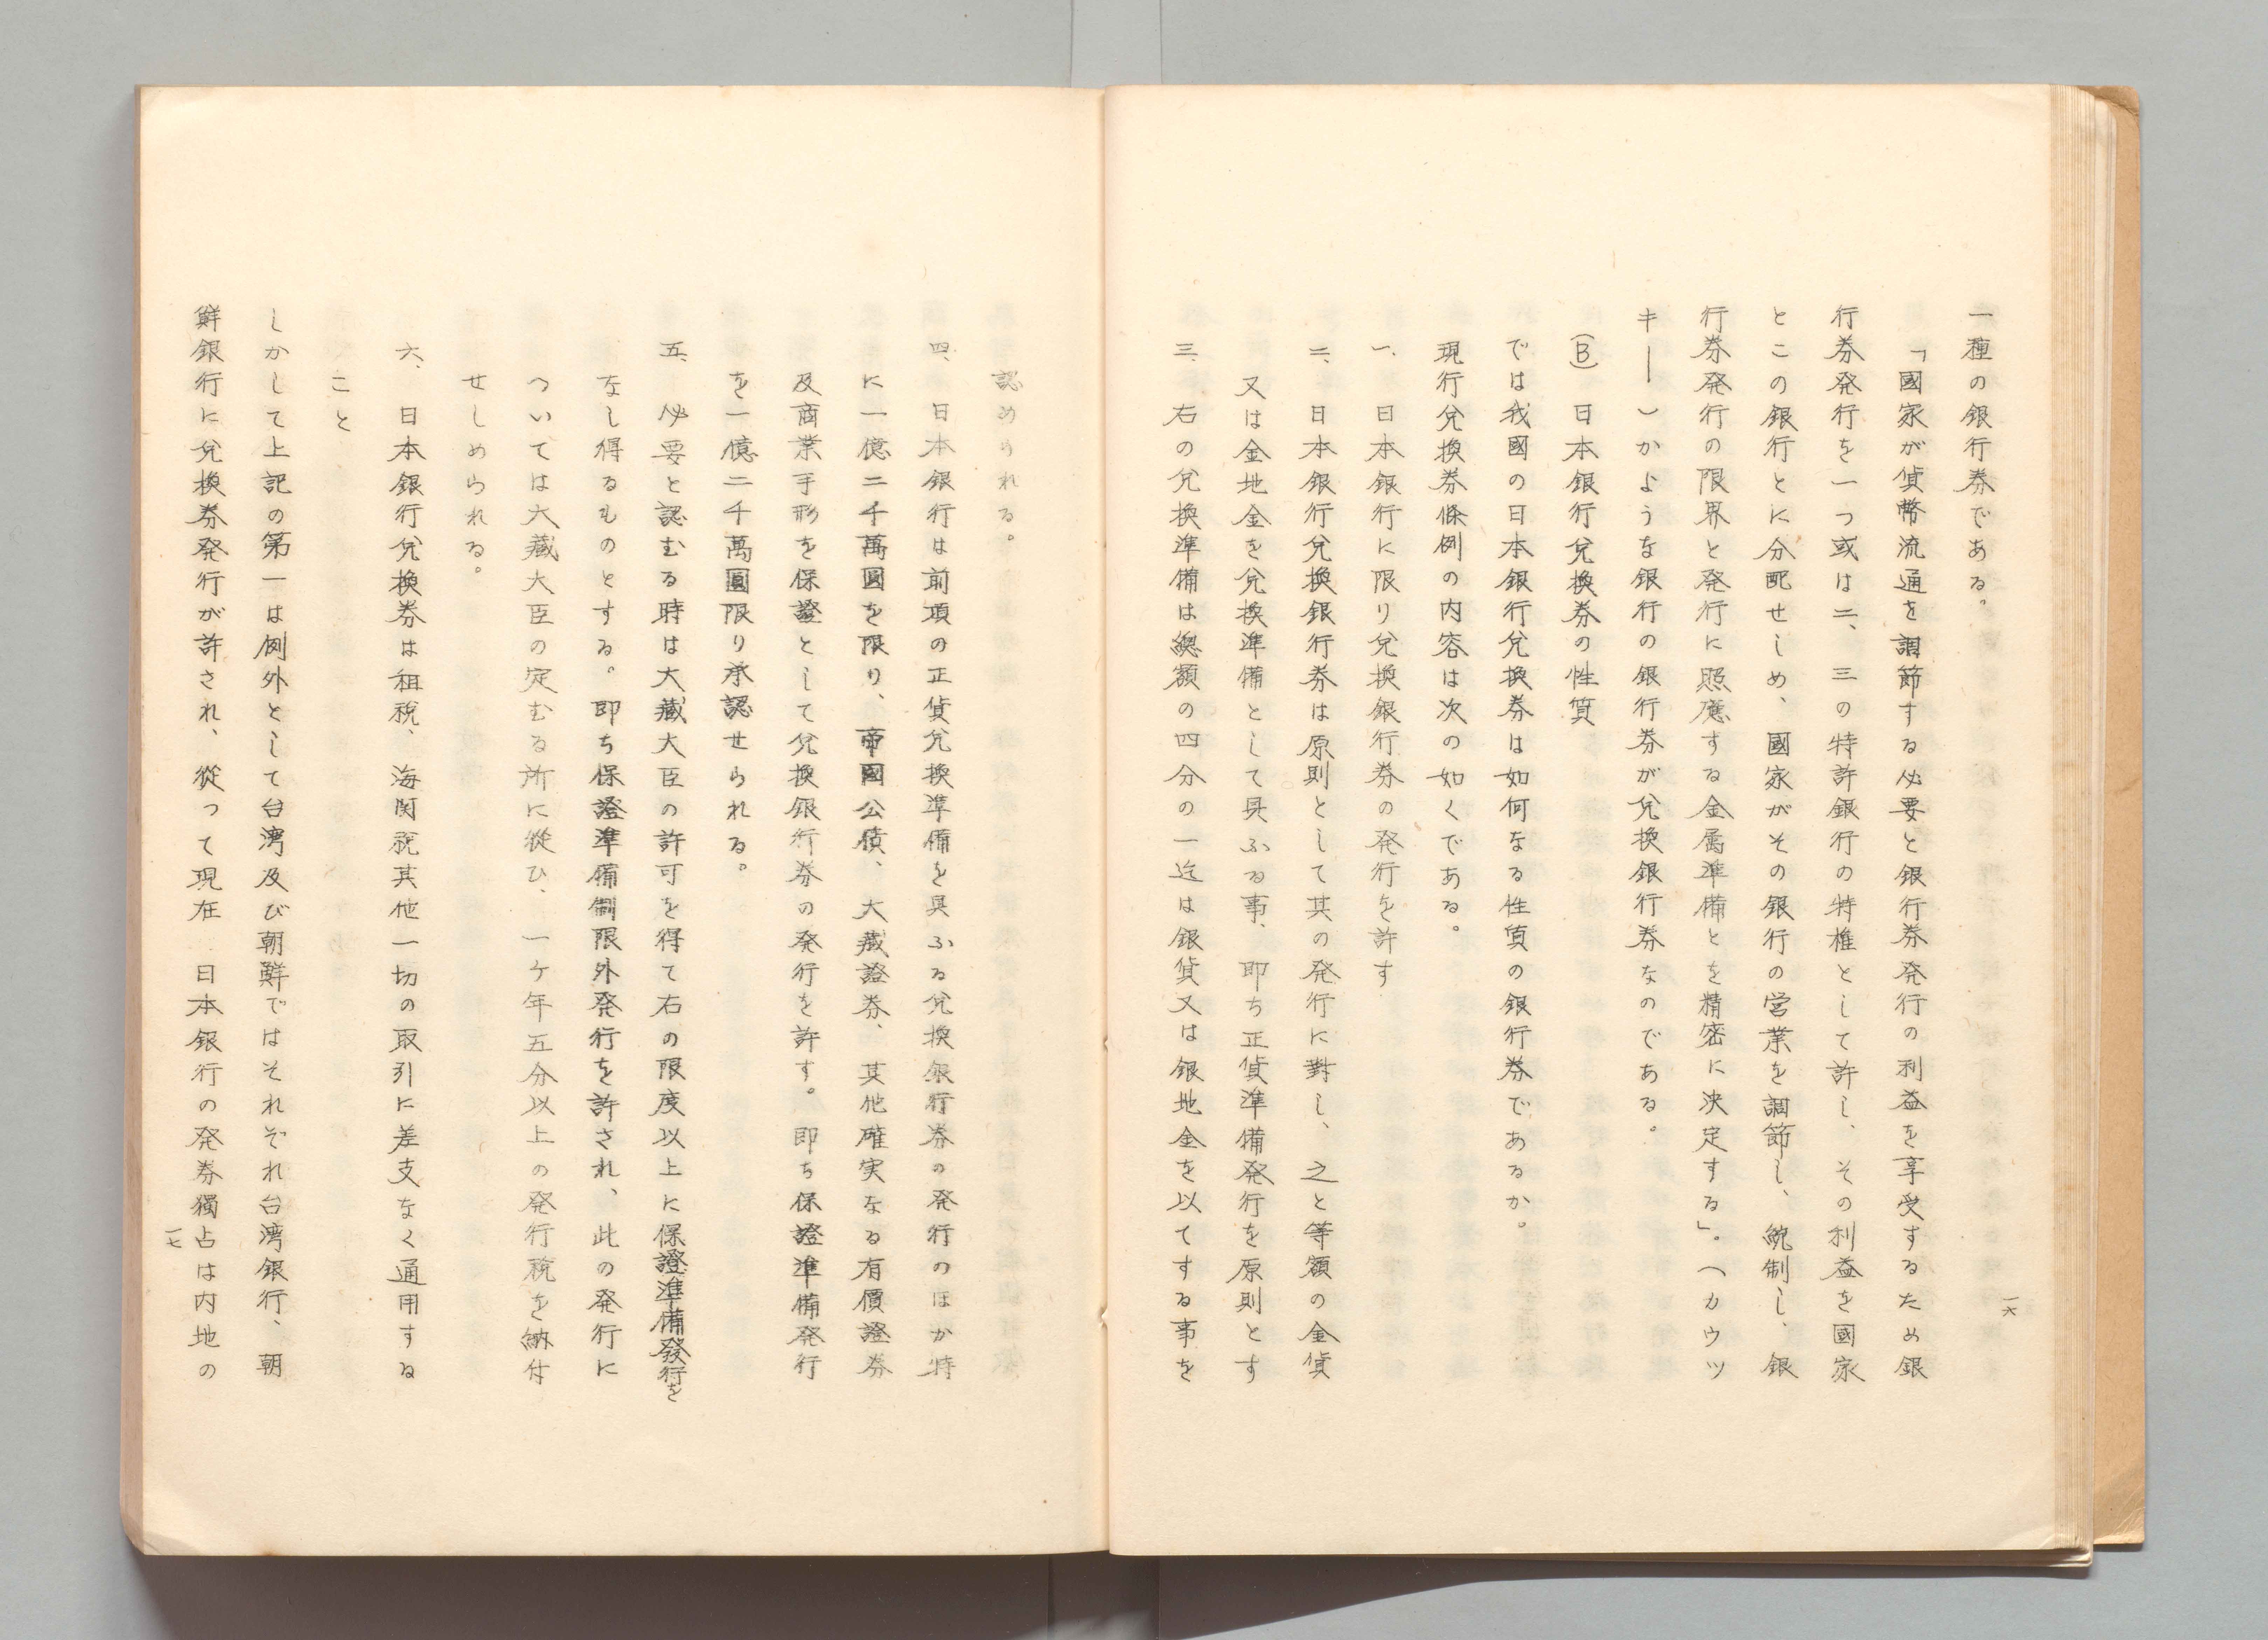 一種の銀行券である。
「國家が貨幣流通を調節する必要と銀行券発行の利益を享受するため銀
行券発行を一つ或は二、三の特許銀行の特権として許し、その利益を國家
とこの銀行とに分配せしめ、國家がその銀行の営業を調節し、統制し、銀
行券発行の限界と発行に照應する金属準備とを精密に決定する」。(カウツ
キー)かような銀行の銀行券が兌換銀行券なのである。
(B) 日本銀行兌換券の性質
では我國の日本銀行兌換券は如何なる性質の銀行券であるか。
現行兌換券條例の内容は次の如くである。
一、日本銀行に限り兌換銀行券の発行を許す
二、日本銀行兌換銀行券は原則として其の発行に對し、之と等額の金貨
又は金地金を兌換準備として具ふる事、即ち正貨準備発行を原則とす
三、右の兌換準備は總額の四分の一迄は銀貨又は銀地金を以てする事を
一六
認めらる。
四、日本銀行は前項の正貨兌換準備を具ふる兌換銀行券の発行のほか特
に一億二千萬圓を限り、帝國公債、大藏證券、其他確実なる有價證券
及商業手形を保證として兌換銀行券の発行を許す。即ち保證準備発行
を一億二千萬圓限り承認せられる。
五、必要と認むる時は大藏大臣の許可を得て右の限度以上に保證準備發行を
なし得るものとする。即ち保證準備制限外発行を許され、此の発行に
ついては大藏大臣の定むる所に從ひ、一ヶ年五分以上の発行税を納付
せしめられる。
六、日本銀行兌換券は租税、海関税其他一切の取引に差支なく通用する
こと
しかして上記の第一は例外として台湾及び朝鮮ではそれぞれ台湾銀行、朝
鮮銀行に兌換券発行が許され、從つて現在日本銀行の発券獨占は内地の
一七